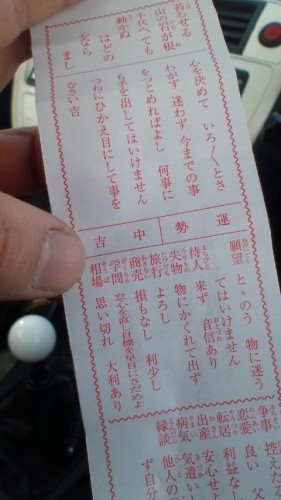 若やせる
山の岩が根
千代へても
動かぬ
ほどの
心なら
まし
心を決めて いろ〱とさ
わがず 迷わず 今までの事
をつとめればよし 何事に
も手を出してはいけません
つたにひかえ目にして事を
なさい吉
運勢
中吉
願望 とゝのう 物に迷う
てはいけません
待人 来ず 音信あり
失物 物にかくれて出ず
旅行 よろし
商売 損もなし 利少し
学問 安心を直し目標を早目にさだめよ
相場 思い切れ 大利あり
争事 控えた
恋愛 良い 父
転居 利益な
出産 安心せ
病気 気遣い
縁談 他人
ず自分